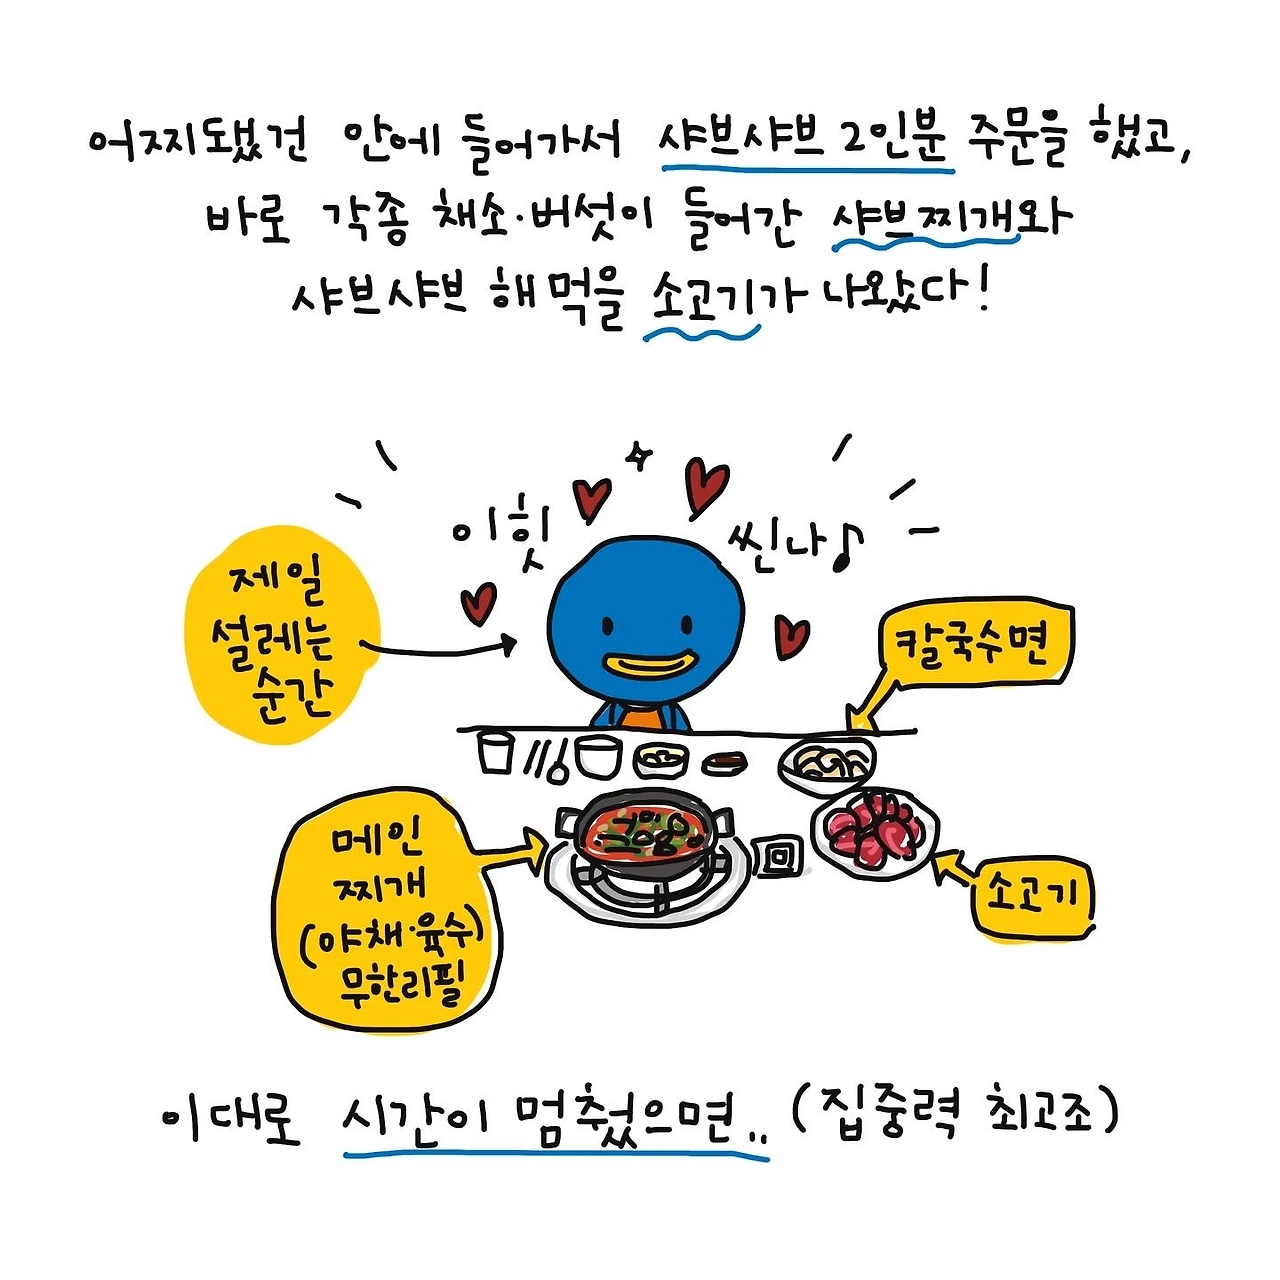 어찌됐건 안에 들어가서 샤브샤브 2인분 주문을 했고,
바로 각종 채소·버섯이 들어간 샤브찌개와
샤브샤브 해먹을 소고기가 나왔다!
이힛
씬나♪
제일
설레는
순간
칼국수면
메인
찌개
(야채·육수)
무한리필
소고기
이대로 시간이 멈췄으면.. (집중력 최고조)